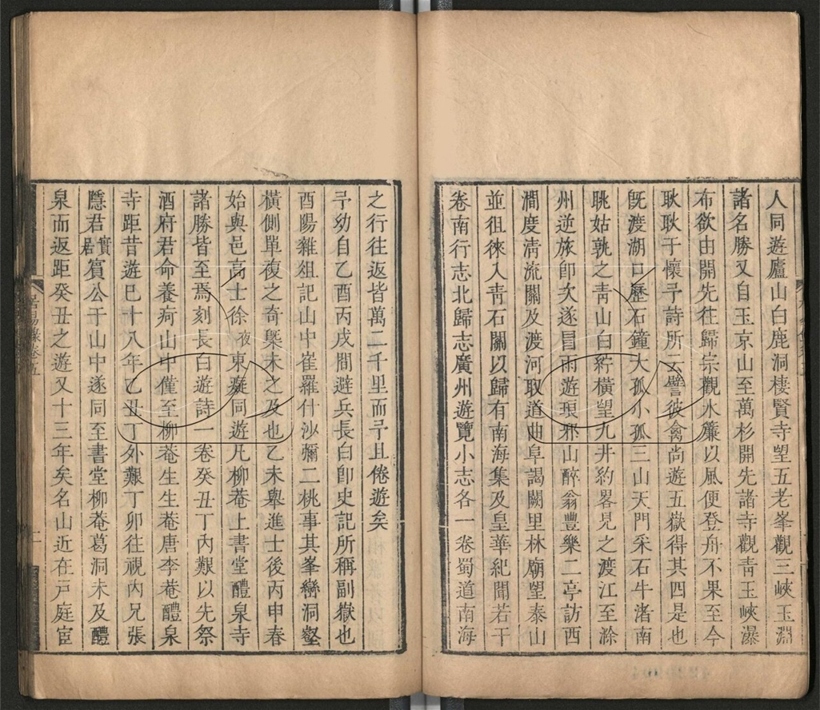 人同遊廬山白鹿洞棲賢寺望五老峯觀三峽玉淵
諸名勝又自玉京山至萬杉開先諸寺觀青玉峽瀑
布欲由開先往歸宗觀水簾以風便登舟不果至今
耿耿于懷予詩所云譬彼禽尚遊五嶽得其四是也
旣渡湖口歷石鐘大孤小孤三山天門采石牛渚南
眺姑孰之青山白紵橫望九井約畧見之渡江至滁
州逆旅卽次遂冒雨遊琅邪山醉翁豐樂二亭訪西
澗度清流關及渡河取道曲阜謁闕里林廟望泰山
並徂徠入青石關以歸有南海集及皇華紀聞若干
卷南行志北歸志廣州遊覽小志各一卷蜀道南海
之行往返皆萬二千里而予且倦遊矣
予幼自乙酉丙戌間避兵長白卽史記所稱副嶽也
酉陽雜俎記山中崔羅什沙彌二桃事其峯巒洞壑
橫側單複之奇槩未之及也乙未舉進士後丙申春
始與邑高士徐夜東癡同遊凡柳菴上書堂醴泉寺
諸勝皆至焉刻長白遊詩一卷癸丑丁內艱以先祭
酒府君命養疴山中僅至柳菴生生菴唐李菴醴泉
寺距昔遊巳十八年乙丑丁外艱丁卯往視內兄張
隱君實居賓公于山中遂同至書堂柳菴葛洞未及醴
泉而返距癸丑之遊又十三年矣名山近在戸庭宦